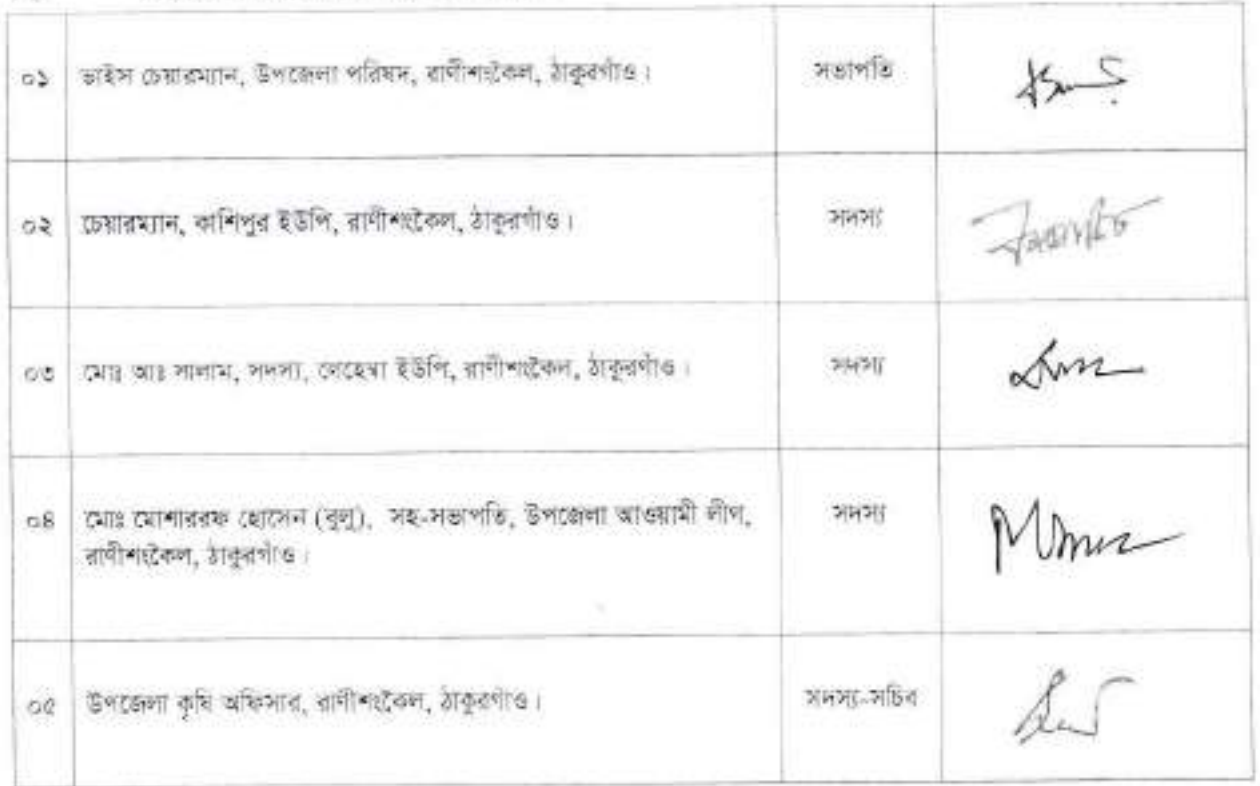 ০১ ভাইস চেয়ারম্যান, উপজেলা পরিষদ, রাণীশংকৈল, ঠাকুরগাঁও। সভাপতি
০২ চেয়ারম্যান, কাশিপুর ইউপি, রাণীশংকৈল, ঠাকুরগাঁও। সদস্য
০৩ মোঃ আঃ সালাম, সদস্য, লেহেম্বা ইউপি, রাণীশংকৈল, ঠাকুরগাঁও। সদস্য
০৪ মোঃ মোশাররফ হোসেন (বুলু), সহ-সভাপতি, উপজেলা আওয়ামী লীগ, সদস্য
রাণীশংকৈল, ঠাকুরগাঁও।
০৫ উপজেলা কৃষি অফিসার, রাণীশংকৈল, ঠাকুরগাঁও। সদস্য-সচিব